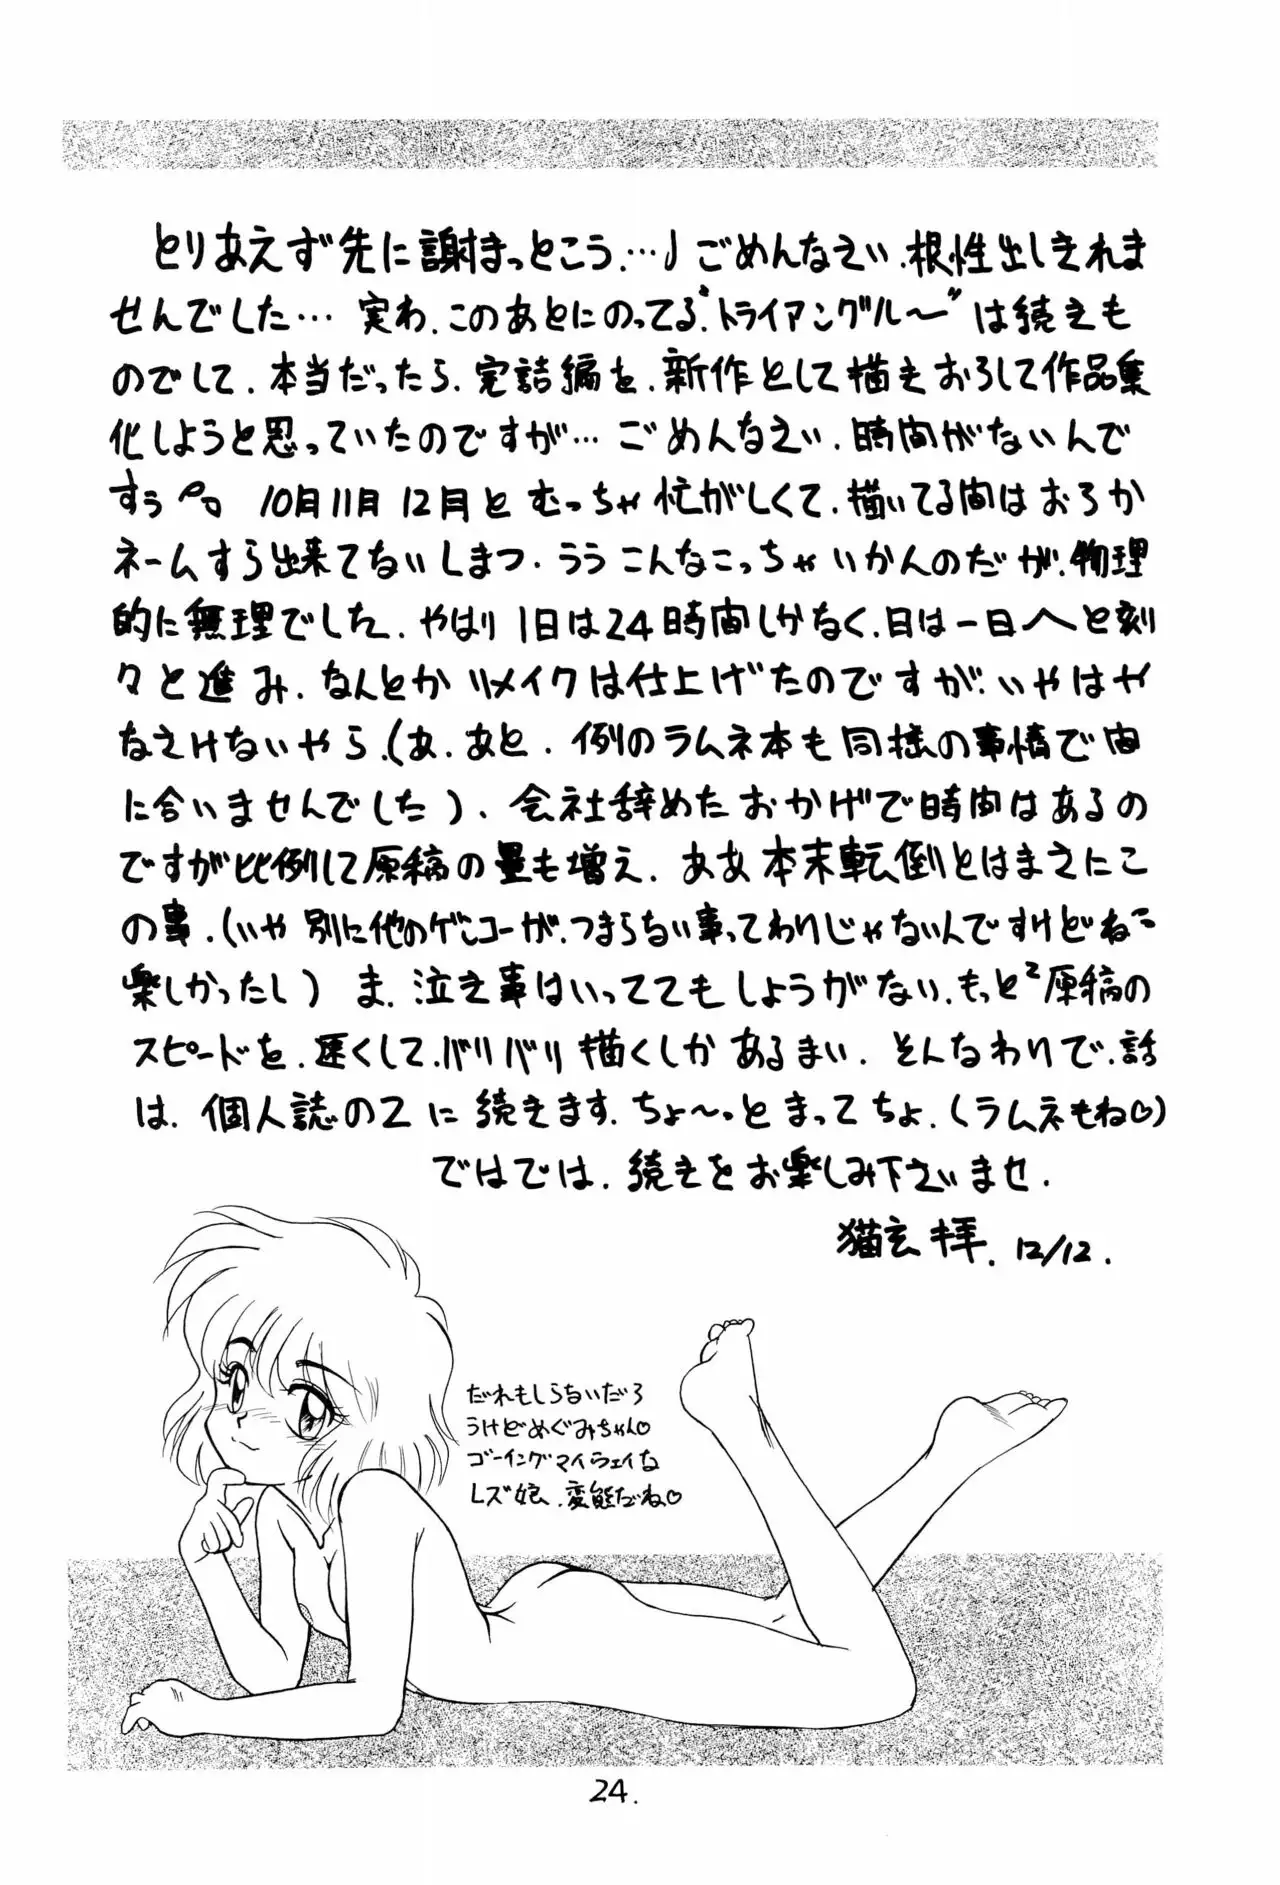 とりあえず先に謝まっとこう…♩ごめんなえい、根性出しきれま
せんでした… 実わ、このあとにのってる"トライアングル〜"は続きも
のでして、本当だったら、完詰編を、新作として描きおろして作品集
化しようと思っていたのですが… ごめんなえい、時間がないんで
すぅ 10月11月12月と むっちゃ忙がしくて、描いてる間はおろか
ネームすら出来てないしまつ、うう こんなこっちゃいかんのだが、物理
的に無理でした、やはり1日は24時間しかなく、日は一日へと刻
々と進み、なんとかリメイクは仕上げたのですが、いやはや
なさけないやら、(あ、あと、例のラムネ本も同様の事情で間
に合いませんでした)、会社辞めたおかげで時間はあるの
ですが比例して原稿の量も増え、ああ本末転倒とはまさにこ
の事、(いや別に他のゲンコーが、つまらない事ってわりじゃないんですけどねー
楽しかったし) ま、泣き事はいっててもしようがない、もっと²原稿の
スピードを、速くして、バリバリ描くしかあるまい、そんなわりで、話
は、個人誌の2に続きます、ちょ〜っとまってちょ、(ラムネもね♡)
ではでは、続きをお楽しみ下さいませ、
猫玄 拝、12/12.
だれもしらないだろ
うけどめぐみちゃん♡
ゴーイングマイウェイな
レズ娘、変態だね♡
24.